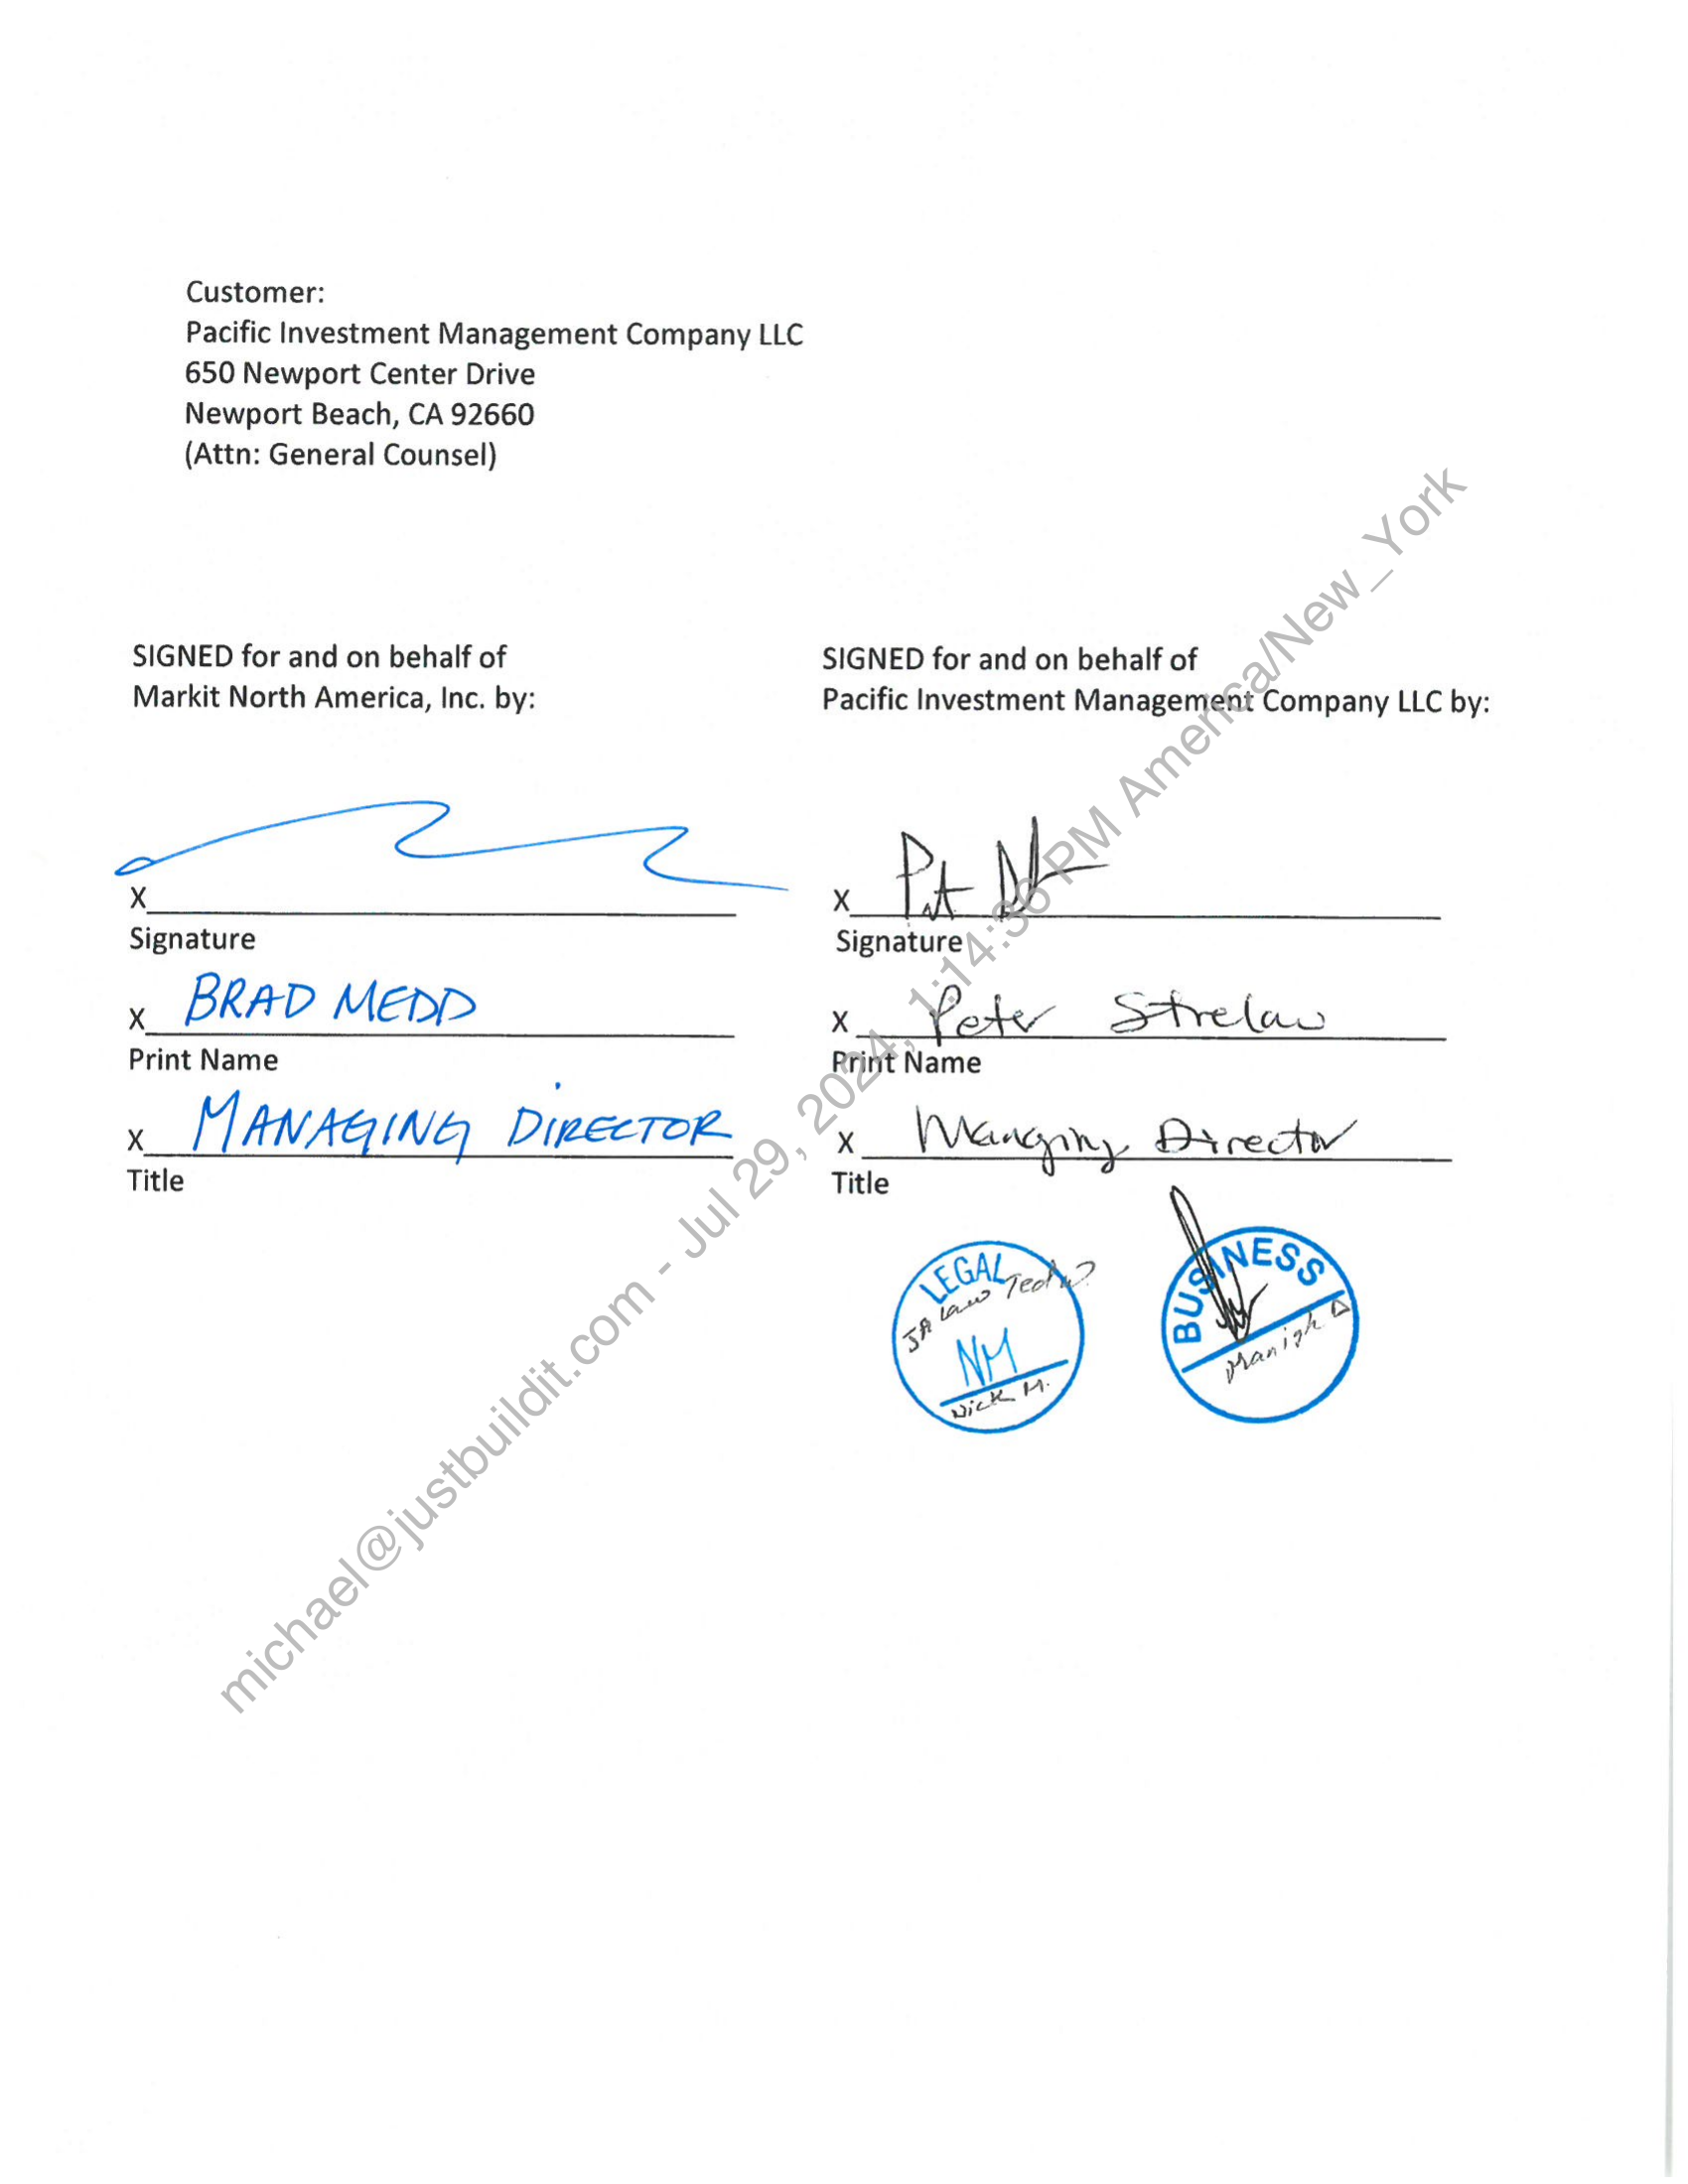 Customer:
Pacific Investment Management Company LLC
650 Newport Center Drive
Newport Beach, CA 92660
(Attn: General Counsel)
SIGNED for and on behalf of
Markit North America, Inc. by:
X
Signature
X BRAD MEDD
Print Name
X MANAGING DIRECTOR
Title
SIGNED for and on behalf of
Pacific Investment Management Company LLC by:
X
Signature
X Peter Strelow
Print Name
X Managing Director
Title
LEGAL
Law Tech
NM
Nick M.
BUSINESS
Manish
michael@justbuildit.com - Jul 29, 2024, 1:14:36 PM America/New_York